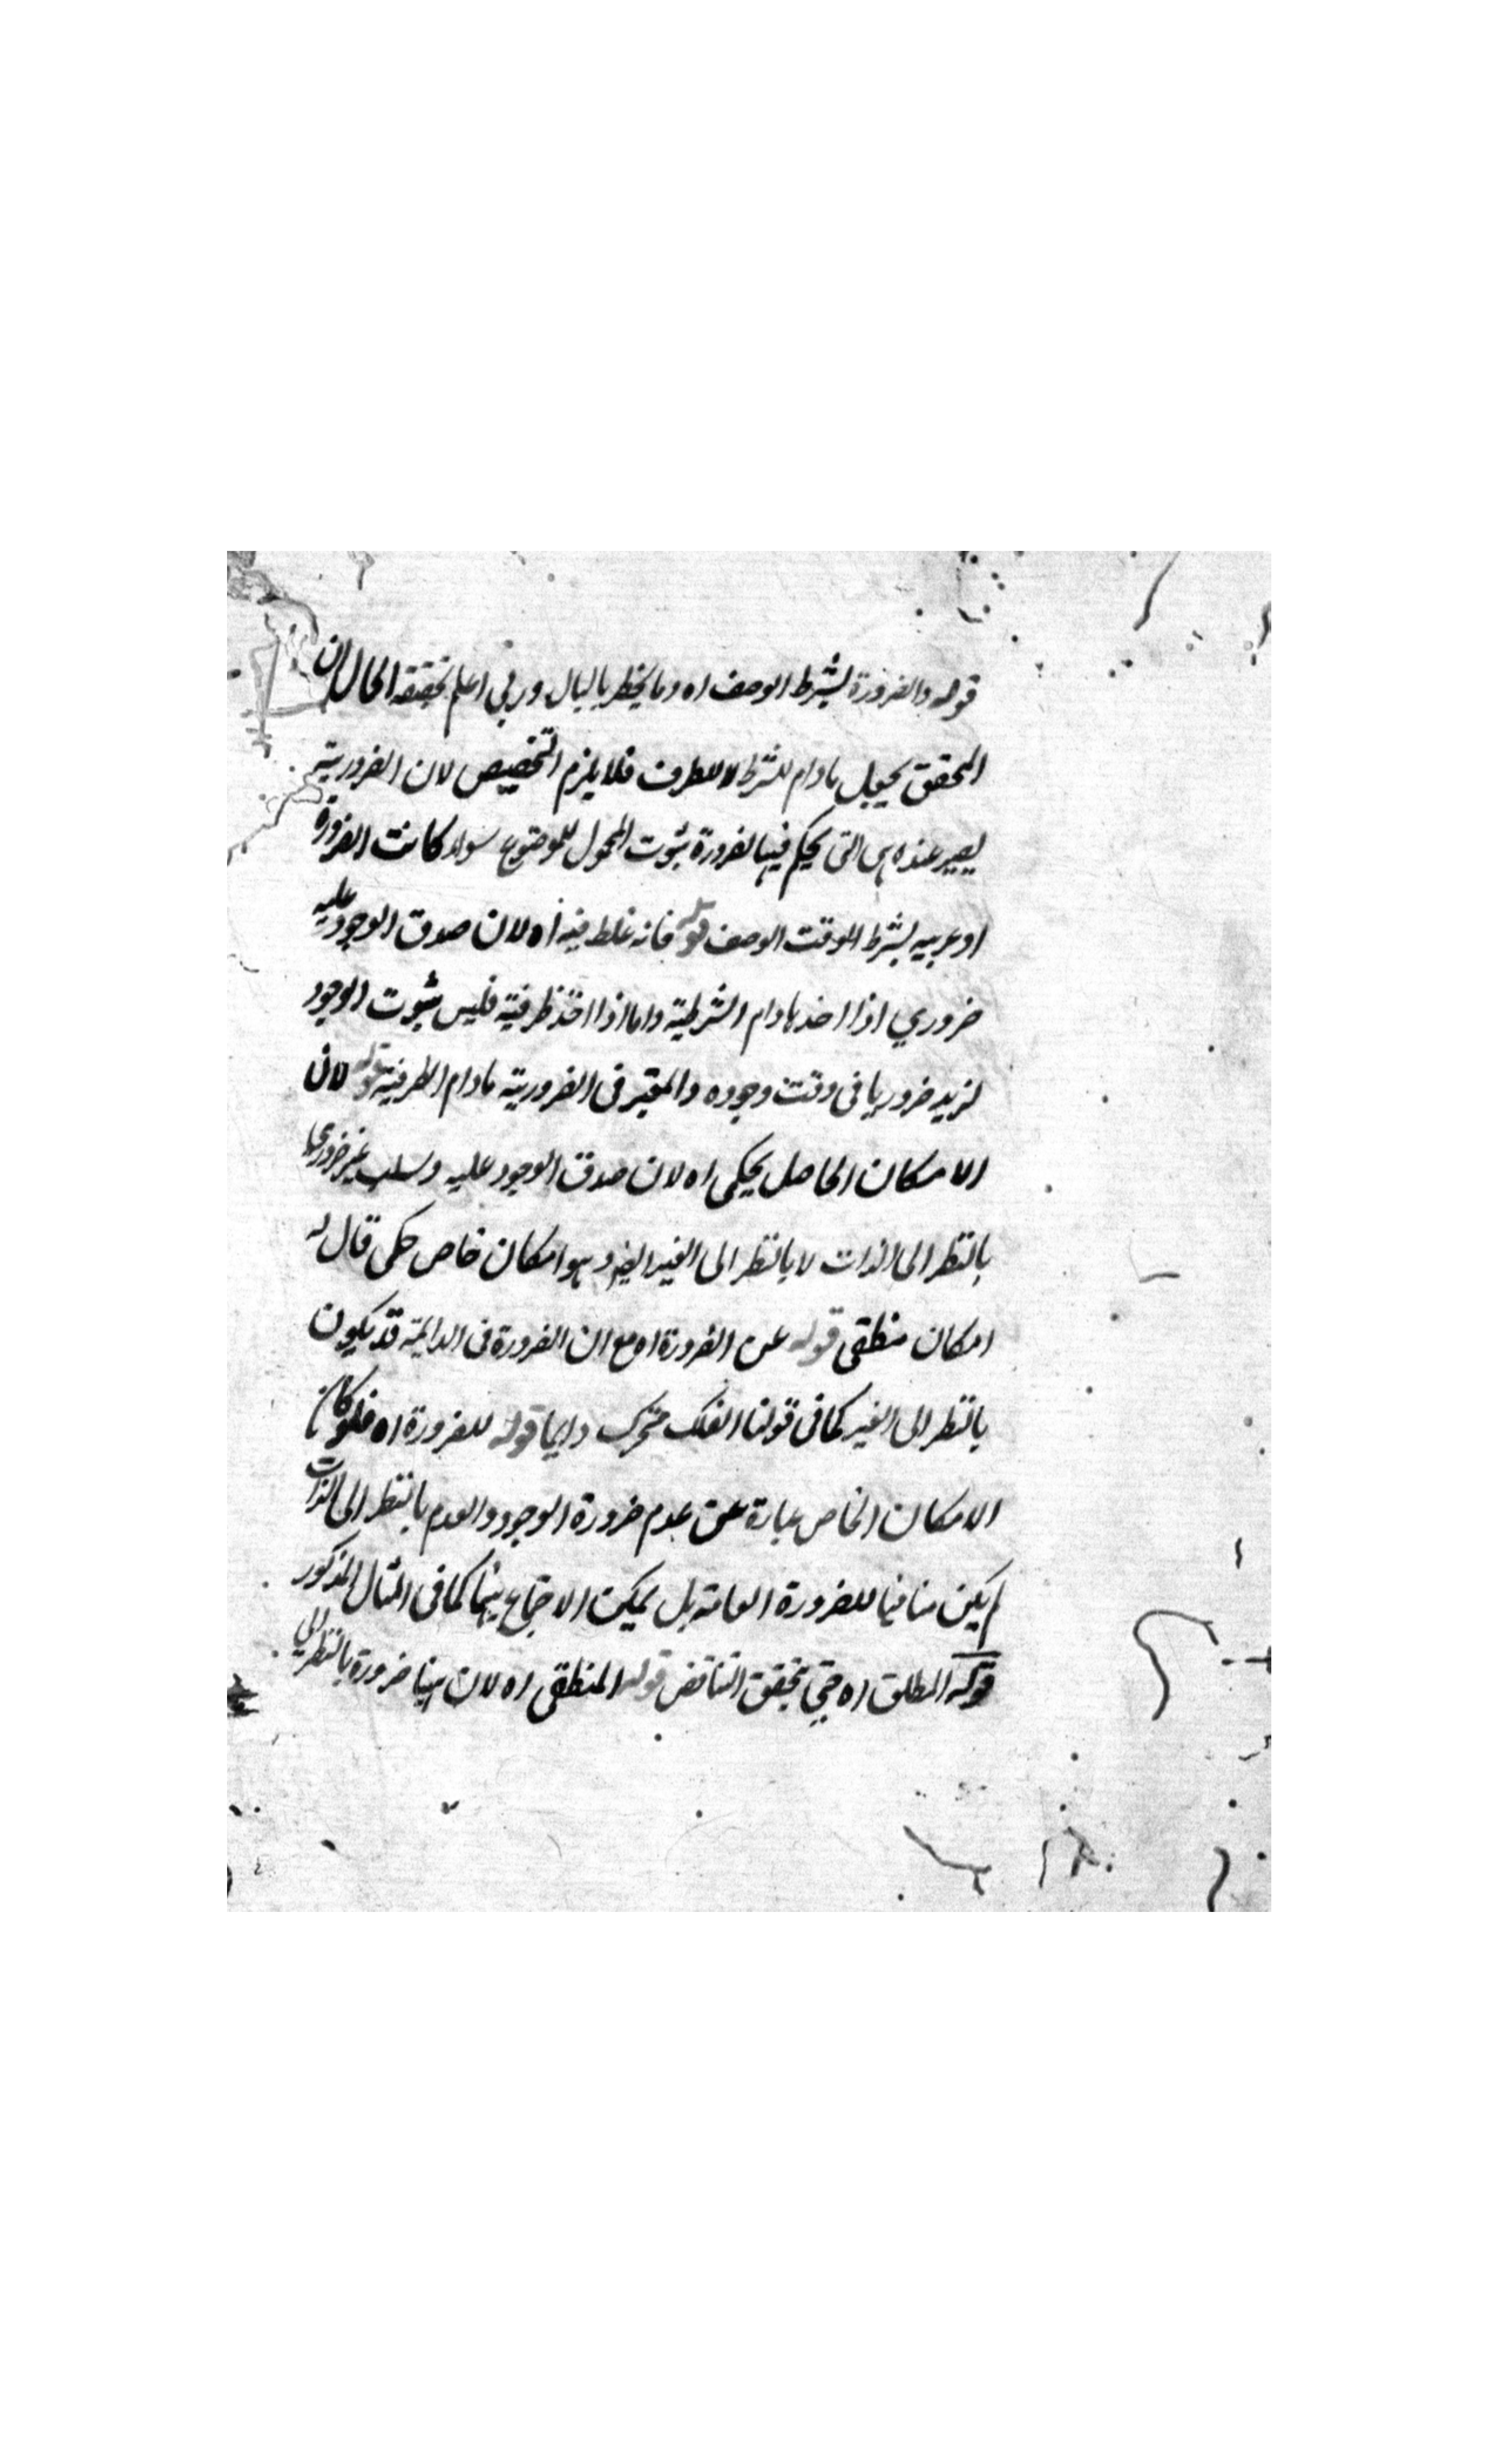 قوله والضرورة بشرط الوصف اه وما يخطر بالبال وربي اعلم بحقيقة الحال ان
المحقق يجعل مادام للشرط لا للظرف فلا يلزم التخصيص لان الضرورية
يصير عنده هى التى يحكم فيها بضرورة ثبوت المحمول للموضوع سواء كانت الضرورة
او بشرط الوقت الوصف قوله فانه غلط فيه اه لان صدق الوجود عليه
ضروري اذا اخذ مادام الشرطية واما اذا اخذ ظرفية فليس ثبوت الوجود
لزيد ضروريا فى وقت وجوده والمعتبر فى الضرورية مادام الظرفية قوله لان
الامكان الحاصل يحكى اه لان صدق الوجود عليه وسلب غير ضروري
بالنظر الى الذات لا بالنظر الى الغير ايضا وهو امكان خاص حكمى قال له
امكان منطقى قوله عن الضرورة اه مع ان الضرورة فى الدايمة قد يكون
بالنظر الى الغير كما فى قولنا الفلك متحرك دايما قوله للضرورة اه فلو كان
الامكان الخاص عبارة عن عدم ضرورة الوجود والعدم بالنظر الى الذات
لم يكن منافيا للضرورة العامة بل يمكن الاجتماع بينهما كما فى المثال المذكور
قوله المطلق اه حتى يتحقق التناقض قوله المنطقى اه لان هينا ضرورة بالنظر الى